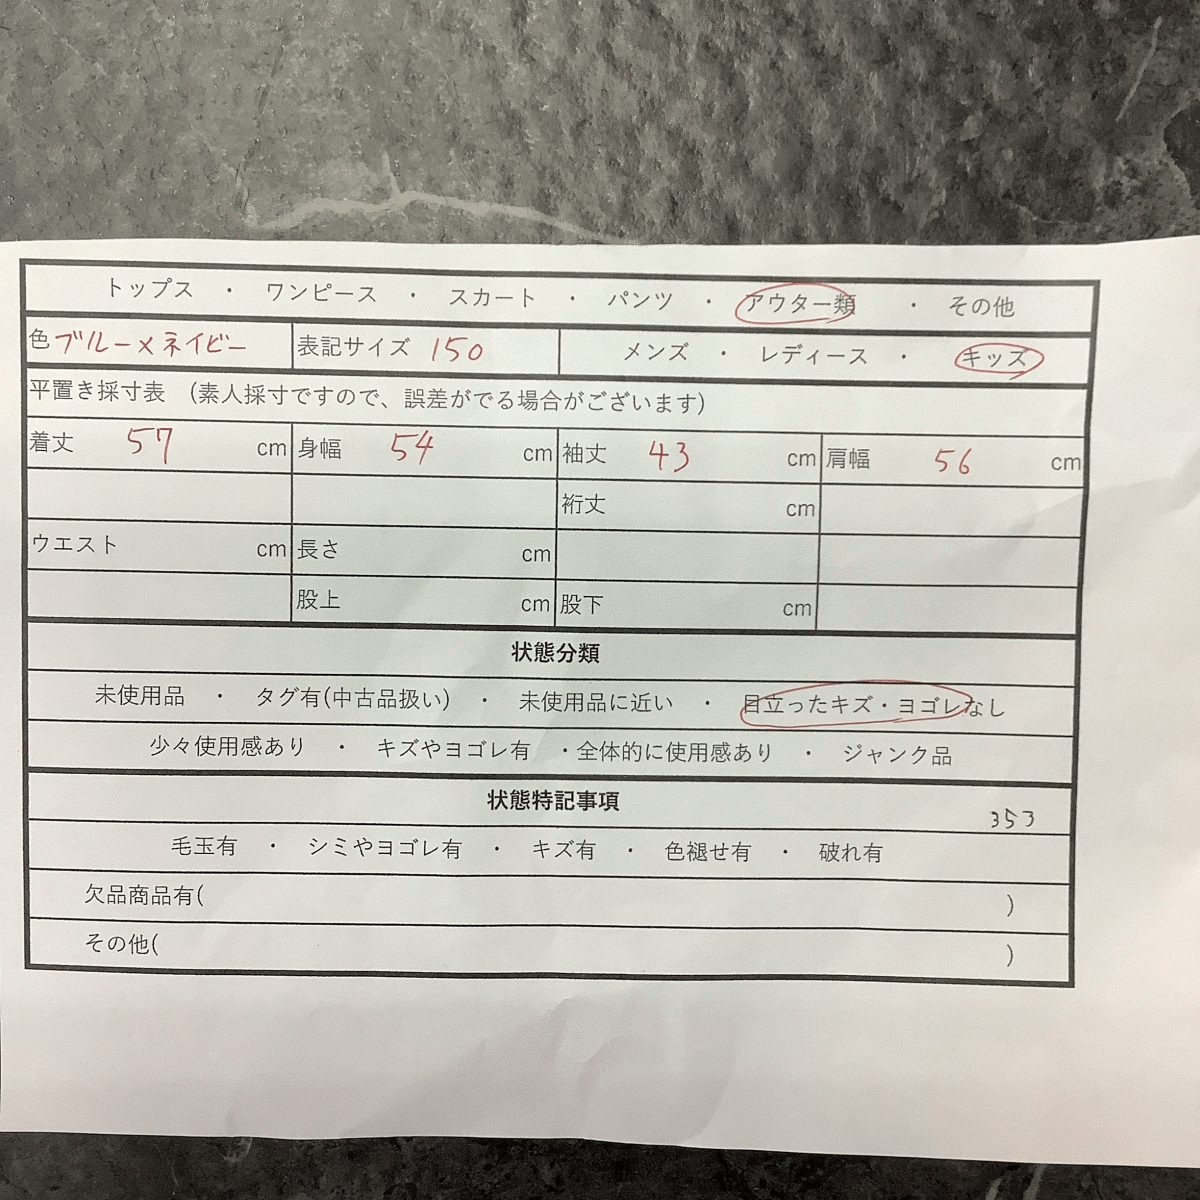 トップス ・ ワンピース ・ スカート ・ パンツ ・ アウター類 ・ その他
色 ブルー×ネイビー 表記サイズ 150 メンズ ・ レディース ・ キッズ
平置き採寸表 (素人採寸ですので、誤差がでる場合がございます)
着丈 57 cm 身幅 54 cm 袖丈 43 cm 肩幅 56 cm
裄丈 cm
ウエスト cm 長さ cm
股上 cm 股下 cm
状態分類
未使用品 ・ タグ有(中古品扱い) ・ 未使用品に近い ・ 目立ったキズ・ヨゴレなし
少々使用感あり ・ キズやヨゴレ有 ・全体的に使用感あり ・ ジャンク品
状態特記事項 353
毛玉有 ・ シミやヨゴレ有 ・ キズ有 ・ 色褪せ有 ・ 破れ有
欠品商品有( )
その他( )